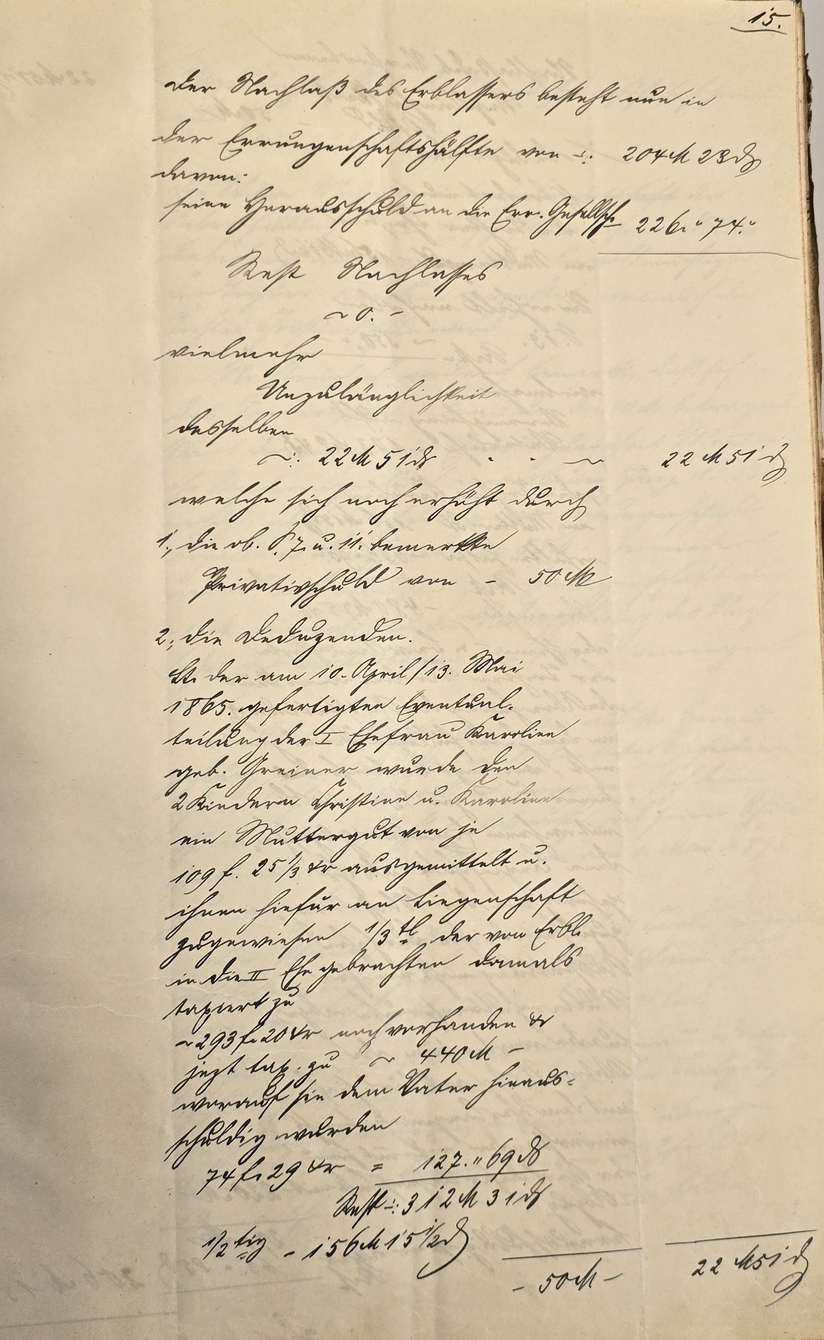 15.
Der Nachlaß des Erblassers besteht nun in
der Errungenschaftshälfte von -: 204 M 23 ₰
davon:
seine Herausschuld an die Err. Gesellsch. 226 " 74 "
Rest Nachlasses
~ 0. -
vielmehr
Unzulänglichkeit
desselben
-: 22 M 51 ₰ - - ~ 22 M 51 ₰
welche sich noch erhöht durch
1., die ob. §. 7. u. 11. bemerkte
Privativschuld von - 50 M
2., die Deduzenden.
Lt. der am 10. April/13. Mai
1865. gefertigten Eventual-
teilung der I Ehefrau Karoline
geb. Greiner wurde den
2 Kindern Christine u. Karoline
ein Muttergut von je
109 f. 25 1/3 kr ausgemittelt u.
ihnen hiefür an Liegenschaft
zugewiesen 1/3 tl der von Erbl.
in die II Ehe gebrachten damals
taxiert zu
~ 293 f. 20 kr noch vorhanden &
jezt tax. zu ~ 440 M -
worauf sie dem Vater hinaus-
schuldig wurden
74 f. 29 kr = 127. " 69 ₰
Rest -: 312 M 31 ₰
1/2 tig - 156 M 15 1/2 ₰
- 50 M - 22 M 51 ₰